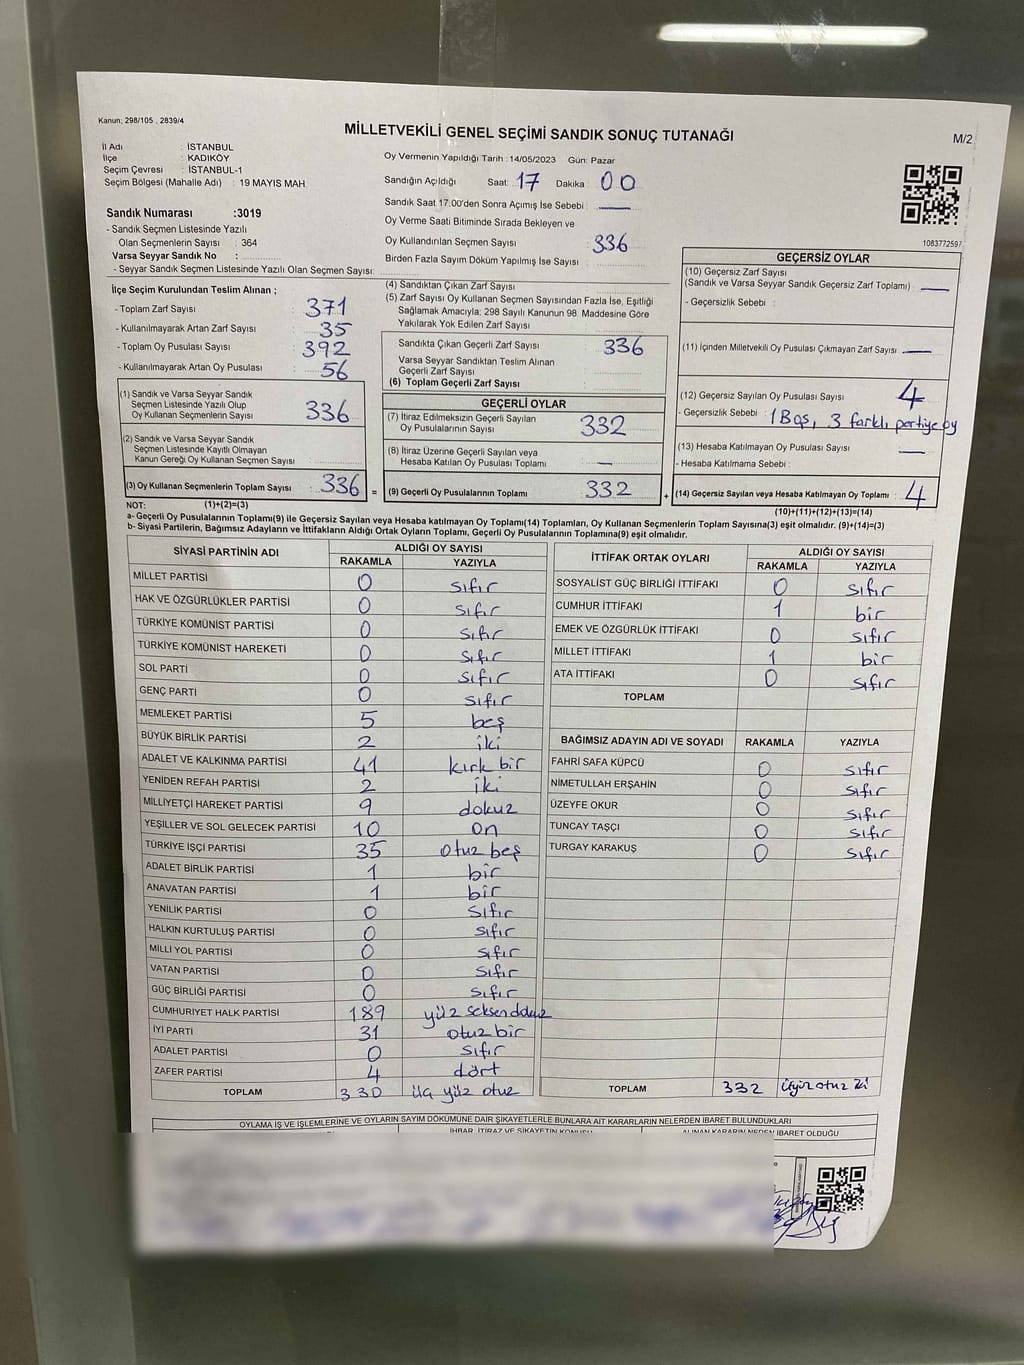 Kanun; 298/105 , 2839/4
MİLLETVEKİLİ GENEL SEÇİMİ SANDIK SONUÇ TUTANAĞI
M/2
İl Adı : İSTANBUL
İlçe : KADIKÖY
Seçim Çevresi : İSTANBUL-1
Seçim Bölgesi (Mahalle Adı) : 19 MAYIS MAH.
Sandık Numarası :3019
- Sandık Seçmen Listesinde Yazılı
Olan Seçmenlerin Sayısı : 364
Varsa Seyyar Sandık No :
- Seyyar Sandık Seçmen Listesinde Yazılı Olan Seçmen Sayısı:
Oy Vermenin Yapıldığı Tarih : 14/05/2023 Gün: Pazar
Sandığın Açıldığı Saat: 17 Dakika 00
Sandık Saat 17:00'den Sonra Açımış İse Sebebi : —
Oy Verme Saati Bitiminde Sırada Bekleyen ve
Oy Kullandırılan Seçmen Sayısı 336
Birden Fazla Sayım Döküm Yapılmış İse Sayısı :
1083772597
İlçe Seçim Kurulundan Teslim Alınan ;
- Toplam Zarf Sayısı : 371
- Kullanılmayarak Artan Zarf Sayısı : 35
- Toplam Oy Pusulası Sayısı : 392
- Kullanılmayarak Artan Oy Pusulası : 56
(1) Sandık ve Varsa Seyyar Sandık
Seçmen Listesinde Yazılı Olup
Oy Kullanan Seçmenlerin Sayısı : 336
(2) Sandık ve Varsa Seyyar Sandık
Seçmen Listesinde Kayıtlı Olmayan
Kanun Gereği Oy Kullanan Seçmen Sayısı :
(3) Oy Kullanan Seçmenlerin Toplam Sayısı : 336 =
(1)+(2)=(3)
(4) Sandıktan Çıkan Zarf Sayısı :
(5) Zarf Sayısı Oy Kullanan Seçmen Sayısından Fazla İse, Eşitliği
Sağlamak Amacıyla; 298 Sayılı Kanunun 98. Maddesine Göre
Yakılarak Yok Edilen Zarf Sayısı :
Sandıkta Çıkan Geçerli Zarf Sayısı : 336
Varsa Seyyar Sandıktan Teslim Alınan
Geçerli Zarf Sayısı :
(6) Toplam Geçerli Zarf Sayısı :
GEÇERLİ OYLAR
(7) İtiraz Edilmeksizin Geçerli Sayılan
Oy Pusulalarının Sayısı : 332
(8) İtiraz Üzerine Geçerli Sayılan veya
Hesaba Katılan Oy Pusulası Toplamı : —
(9) Geçerli Oy Pusulalarının Toplamı : 332 +
GEÇERSİZ OYLAR
(10) Geçersiz Zarf Sayısı
(Sandık ve Varsa Seyyar Sandık Geçersiz Zarf Toplamı) : —
- Geçersizlik Sebebi :
(11) İçinden Milletvekili Oy Pusulası Çıkmayan Zarf Sayısı : —
(12) Geçersiz Sayılan Oy Pusulası Sayısı : 4
- Geçersizlik Sebebi : 1 Boş, 3 farklı partiye oy
(13) Hesaba Katılmayan Oy Pusulası Sayısı : —
- Hesaba Katılmama Sebebi :
(14) Geçersiz Sayılan veya Hesaba Katılmayan Oy Toplamı : 4
(10)+(11)+(12)+(13)=(14)
NOT:
a- Geçerli Oy Pusulalarının Toplamı(9) ile Geçersiz Sayılan veya Hesaba katılmayan Oy Toplamı(14) Toplamları, Oy Kullanan Seçmenlerin Toplam Sayısına(3) eşit olmalıdır. (9)+(14)=(3)
b- Siyasi Partilerin, Bağımsız Adayların ve İttifakların Aldığı Ortak Oyların Toplamı, Geçerli Oy Pusulalarının Toplamına(9) eşit olmalıdır.
SİYASİ PARTİNİN ADI ALDIĞI OY SAYISI
RAKAMLA YAZIYLA
MİLLET PARTİSİ 0 sıfır
HAK VE ÖZGÜRLÜKLER PARTİSİ 0 sıfır
TÜRKİYE KOMÜNİST PARTİSİ 0 sıfır
TÜRKİYE KOMÜNİST HAREKETİ 0 sıfır
SOL PARTİ 0 sıfır
GENÇ PARTİ 0 sıfır
MEMLEKET PARTİSİ 5 beş
BÜYÜK BİRLİK PARTİSİ 2 iki
ADALET VE KALKINMA PARTİSİ 41 kırk bir
YENİDEN REFAH PARTİSİ 2 iki
MİLLİYETÇİ HAREKET PARTİSİ 9 dokuz
YEŞİLLER VE SOL GELECEK PARTİSİ 10 on
TÜRKİYE İŞÇİ PARTİSİ 35 otuz beş
ADALET BİRLİK PARTİSİ 1 bir
ANAVATAN PARTİSİ 1 bir
YENİLİK PARTİSİ 0 sıfır
HALKIN KURTULUŞ PARTİSİ 0 sıfır
MİLLİ YOL PARTİSİ 0 sıfır
VATAN PARTİSİ 0 sıfır
GÜÇ BİRLİĞİ PARTİSİ 0 sıfır
CUMHURİYET HALK PARTİSİ 189 yüz seksen dokuz
İYİ PARTİ 31 otuz bir
ADALET PARTİSİ 0 sıfır
ZAFER PARTİSİ 4 dört
TOPLAM 330 üç yüz otuz
İTTİFAK ORTAK OYLARI ALDIĞI OY SAYISI
RAKAMLA YAZIYLA
SOSYALİST GÜÇ BİRLİĞİ İTTİFAKI 0 sıfır
CUMHUR İTTİFAKI 1 bir
EMEK VE ÖZGÜRLÜK İTTİFAKI 0 sıfır
MİLLET İTTİFAKI 1 bir
ATA İTTİFAKI 0 sıfır
TOPLAM
BAĞIMSIZ ADAYIN ADI VE SOYADI RAKAMLA YAZIYLA
FAHRİ SAFA KÜPCÜ 0 sıfır
NİMETULLAH ERŞAHİN 0 sıfır
ÜZEYFE OKUR 0 sıfır
TUNCAY TAŞÇI 0 sıfır
TURGAY KARAKUŞ 0 sıfır
TOPLAM 332
OYLAMA İŞ VE İŞLEMLERİNE VE OYLARIN SAYIM DÖKÜMÜNE DAİR ŞİKAYETLERLE BUNLARA AİT KARARLARIN NELERDEN İBARET BULUNDUKLARI
İHBAR, İTİRAZ VE ŞİKAYETİN KONUSU ALINAN KARARIN NEDEN İBARET OLDUĞU